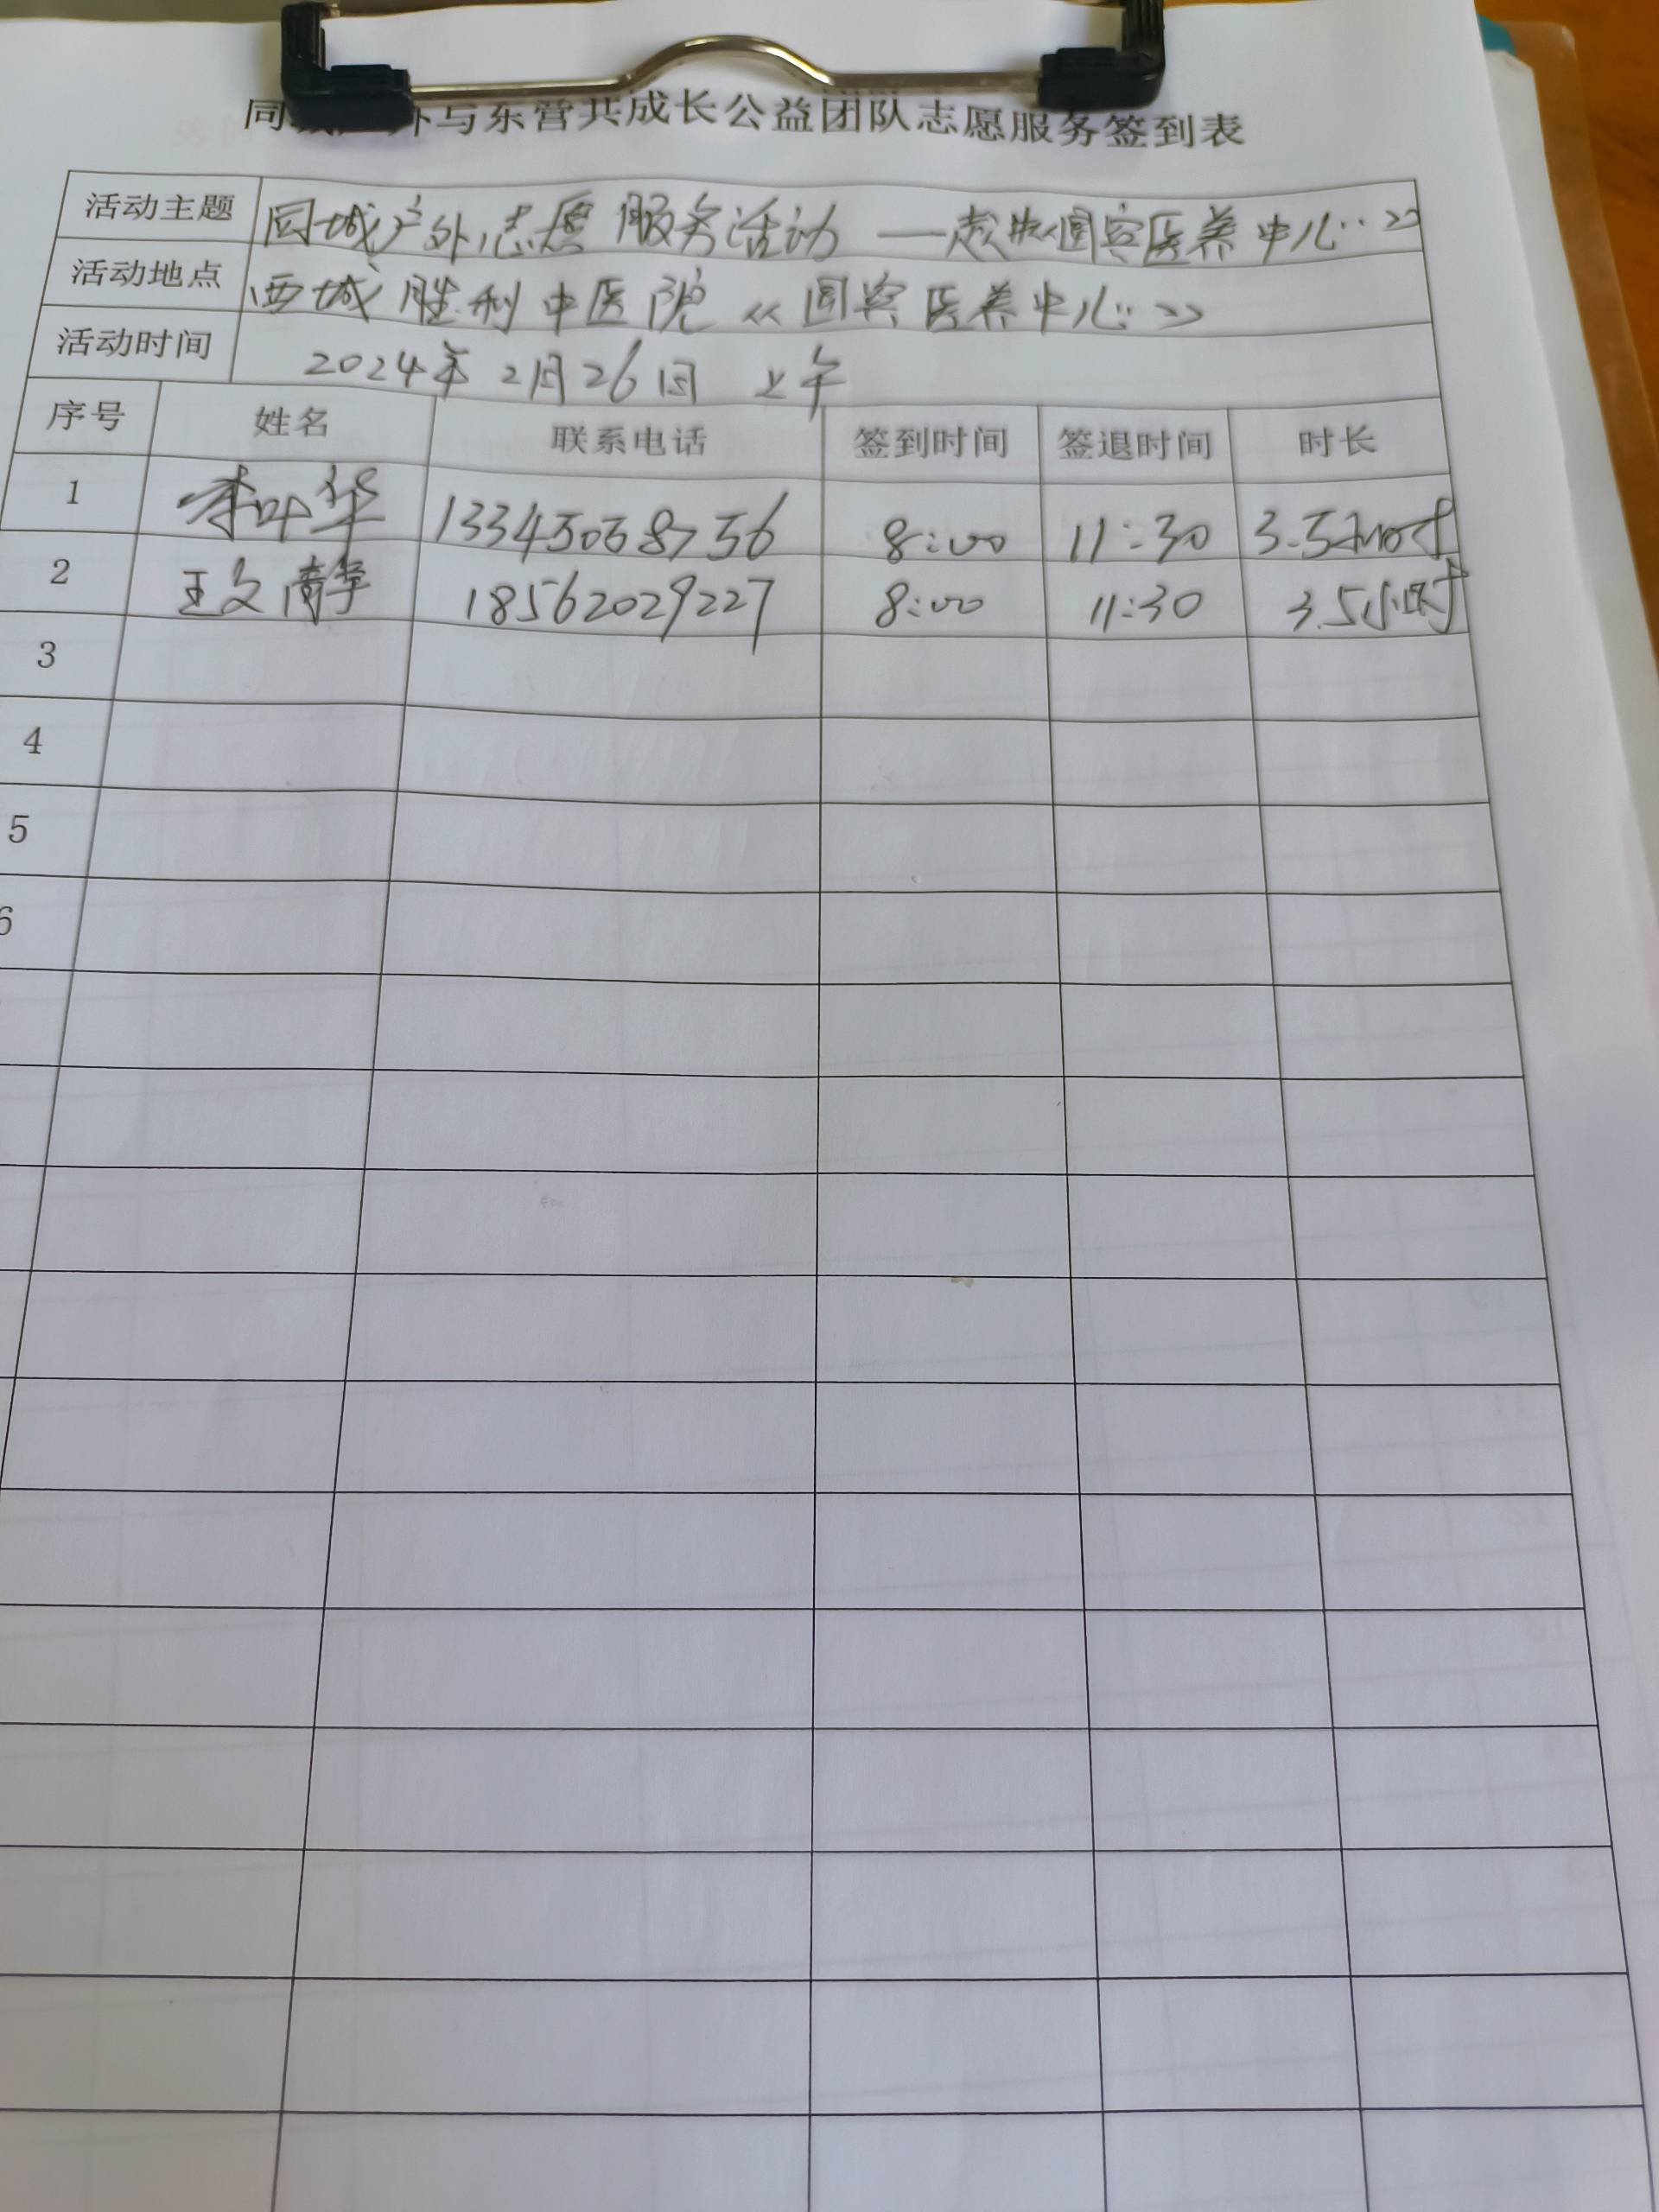 同城户外与东营共成长公益团队志愿服务签到表
活动主题 同城户外志愿服务活动 —走进《圆容医养中心》
活动地点 西城胜利中医院《圆容医养中心》
活动时间 2024年2月26日 上午
序号 姓名 联系电话 签到时间 签退时间 时长
1 李叶华 8:00 11:30 3.5小时
2 王文静 18562029227 8:00 11:30 3.5小时
3
4
5
6